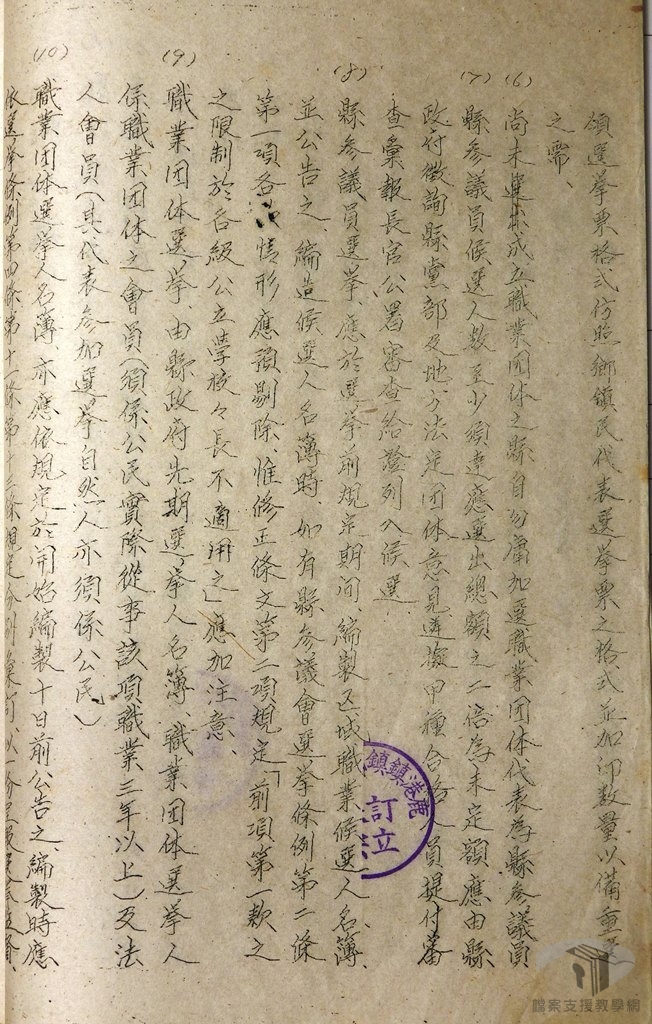 頒選挙票格式仿照鄉鎮民代表選挙票之格式並加印数量以備重
之需、
(6) 尚未成立職業団体之縣自勿庸加選職業団体代表為縣参議員
(7) 縣参議員候選人数至少須達應選出總額之二倍為未定額應由縣
政府徵詢縣黨部及地方法定団体意見遴施甲種合格 員提付審
查彙報長官公署審查給證列入候選
(8) 縣参議員選挙、應於選挙前規定期间、編製区域職業候選人名簿、
並公告之、編造候選人名簿時、如有縣参議會選挙條例第二條
第一項各 情形應預剔除、惟修正條文第二項規定「前項第一款之
之限制於各級公立學校々長不適用之」應加注意、
(9) 職業団体選挙、由縣政府先期選挙人名簿、職業団体選挙人
係職業団体之會員(須係公民實際從事該項職業三年以上)及法
人會員(其代表参加選挙自然人亦須係公民)
(10) 職業団体選挙人名簿、亦應依規定於開始編製十日前公告之、編製時應
依選挙條例第四條第十一條第十 條規定分別彙訂以一份呈報選
鹿港鎮鎮
訂立
檔案支援教學網